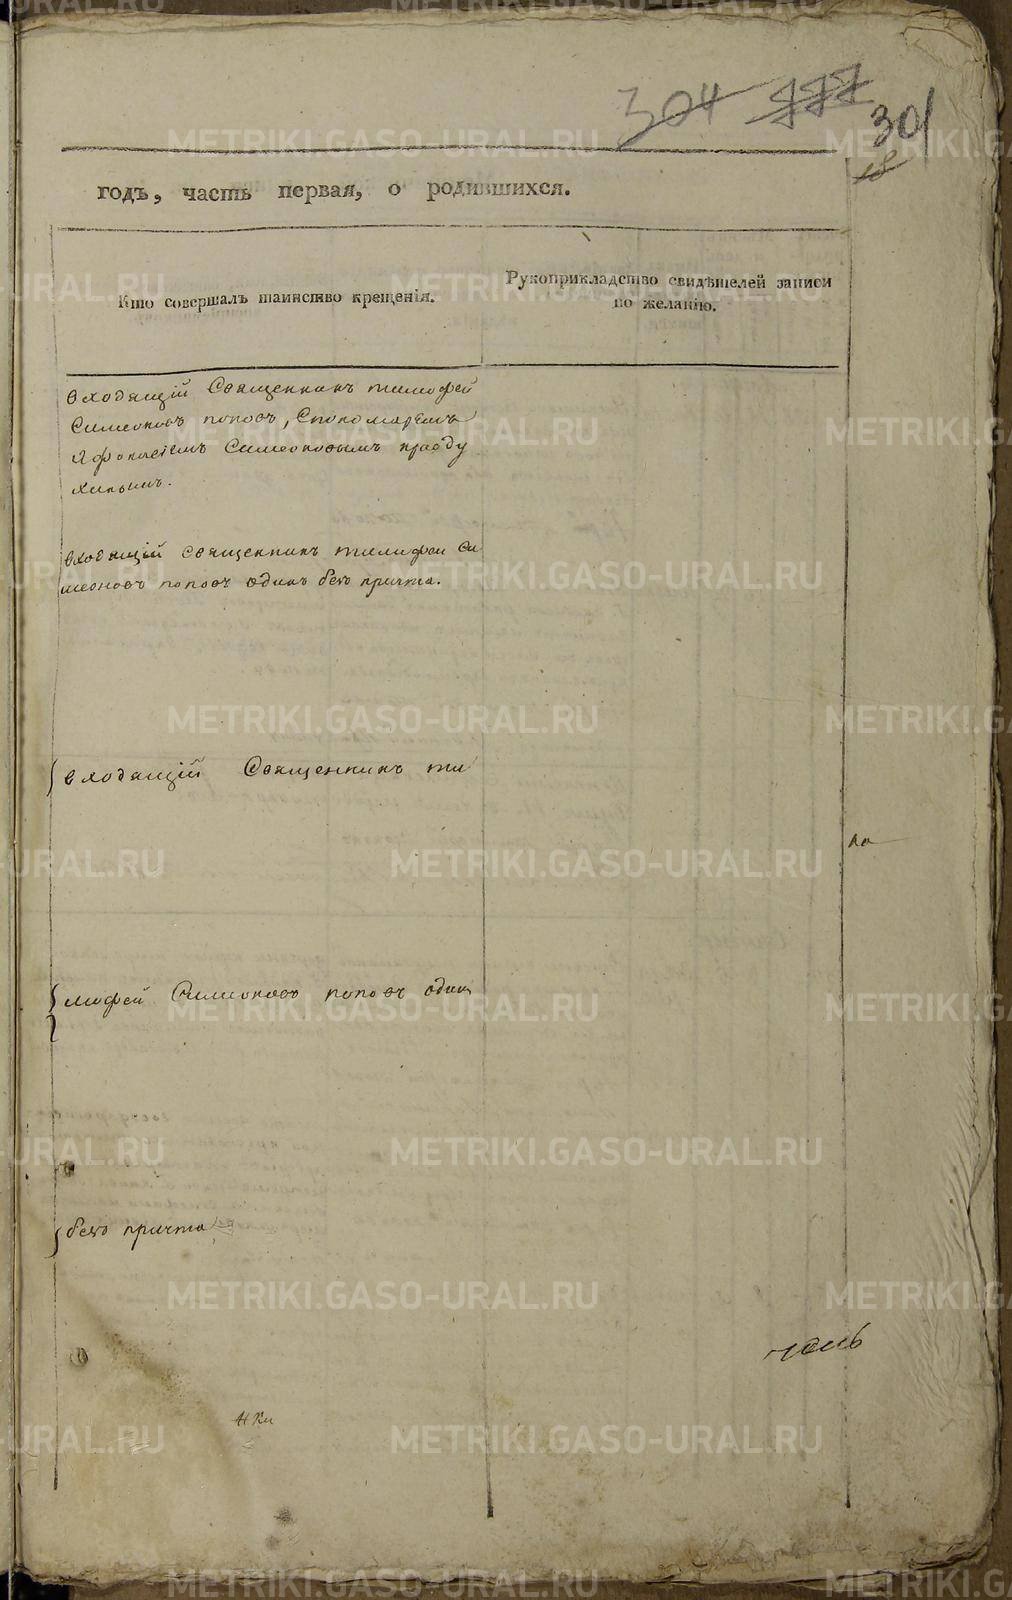 304 777 301
18
годъ, часть первая, о родившихся.
Кто совершалъ таинство крещенія.
Рукоприкладство свидѣтелей записи
по желанію.
входящій Священникъ тимофей
Симеоновъ поповъ, Спономаремъ
Афонасіемъ Симеоновымъ правду
хинымъ.
входящій священникъ тимофеи Си
меоновъ поповъ одинъ безъ причта.
входящій Священникъ ти
на
мофей Симеоновъ поповъ один
безъ причта
METRIKI.GASO-URAL.RU